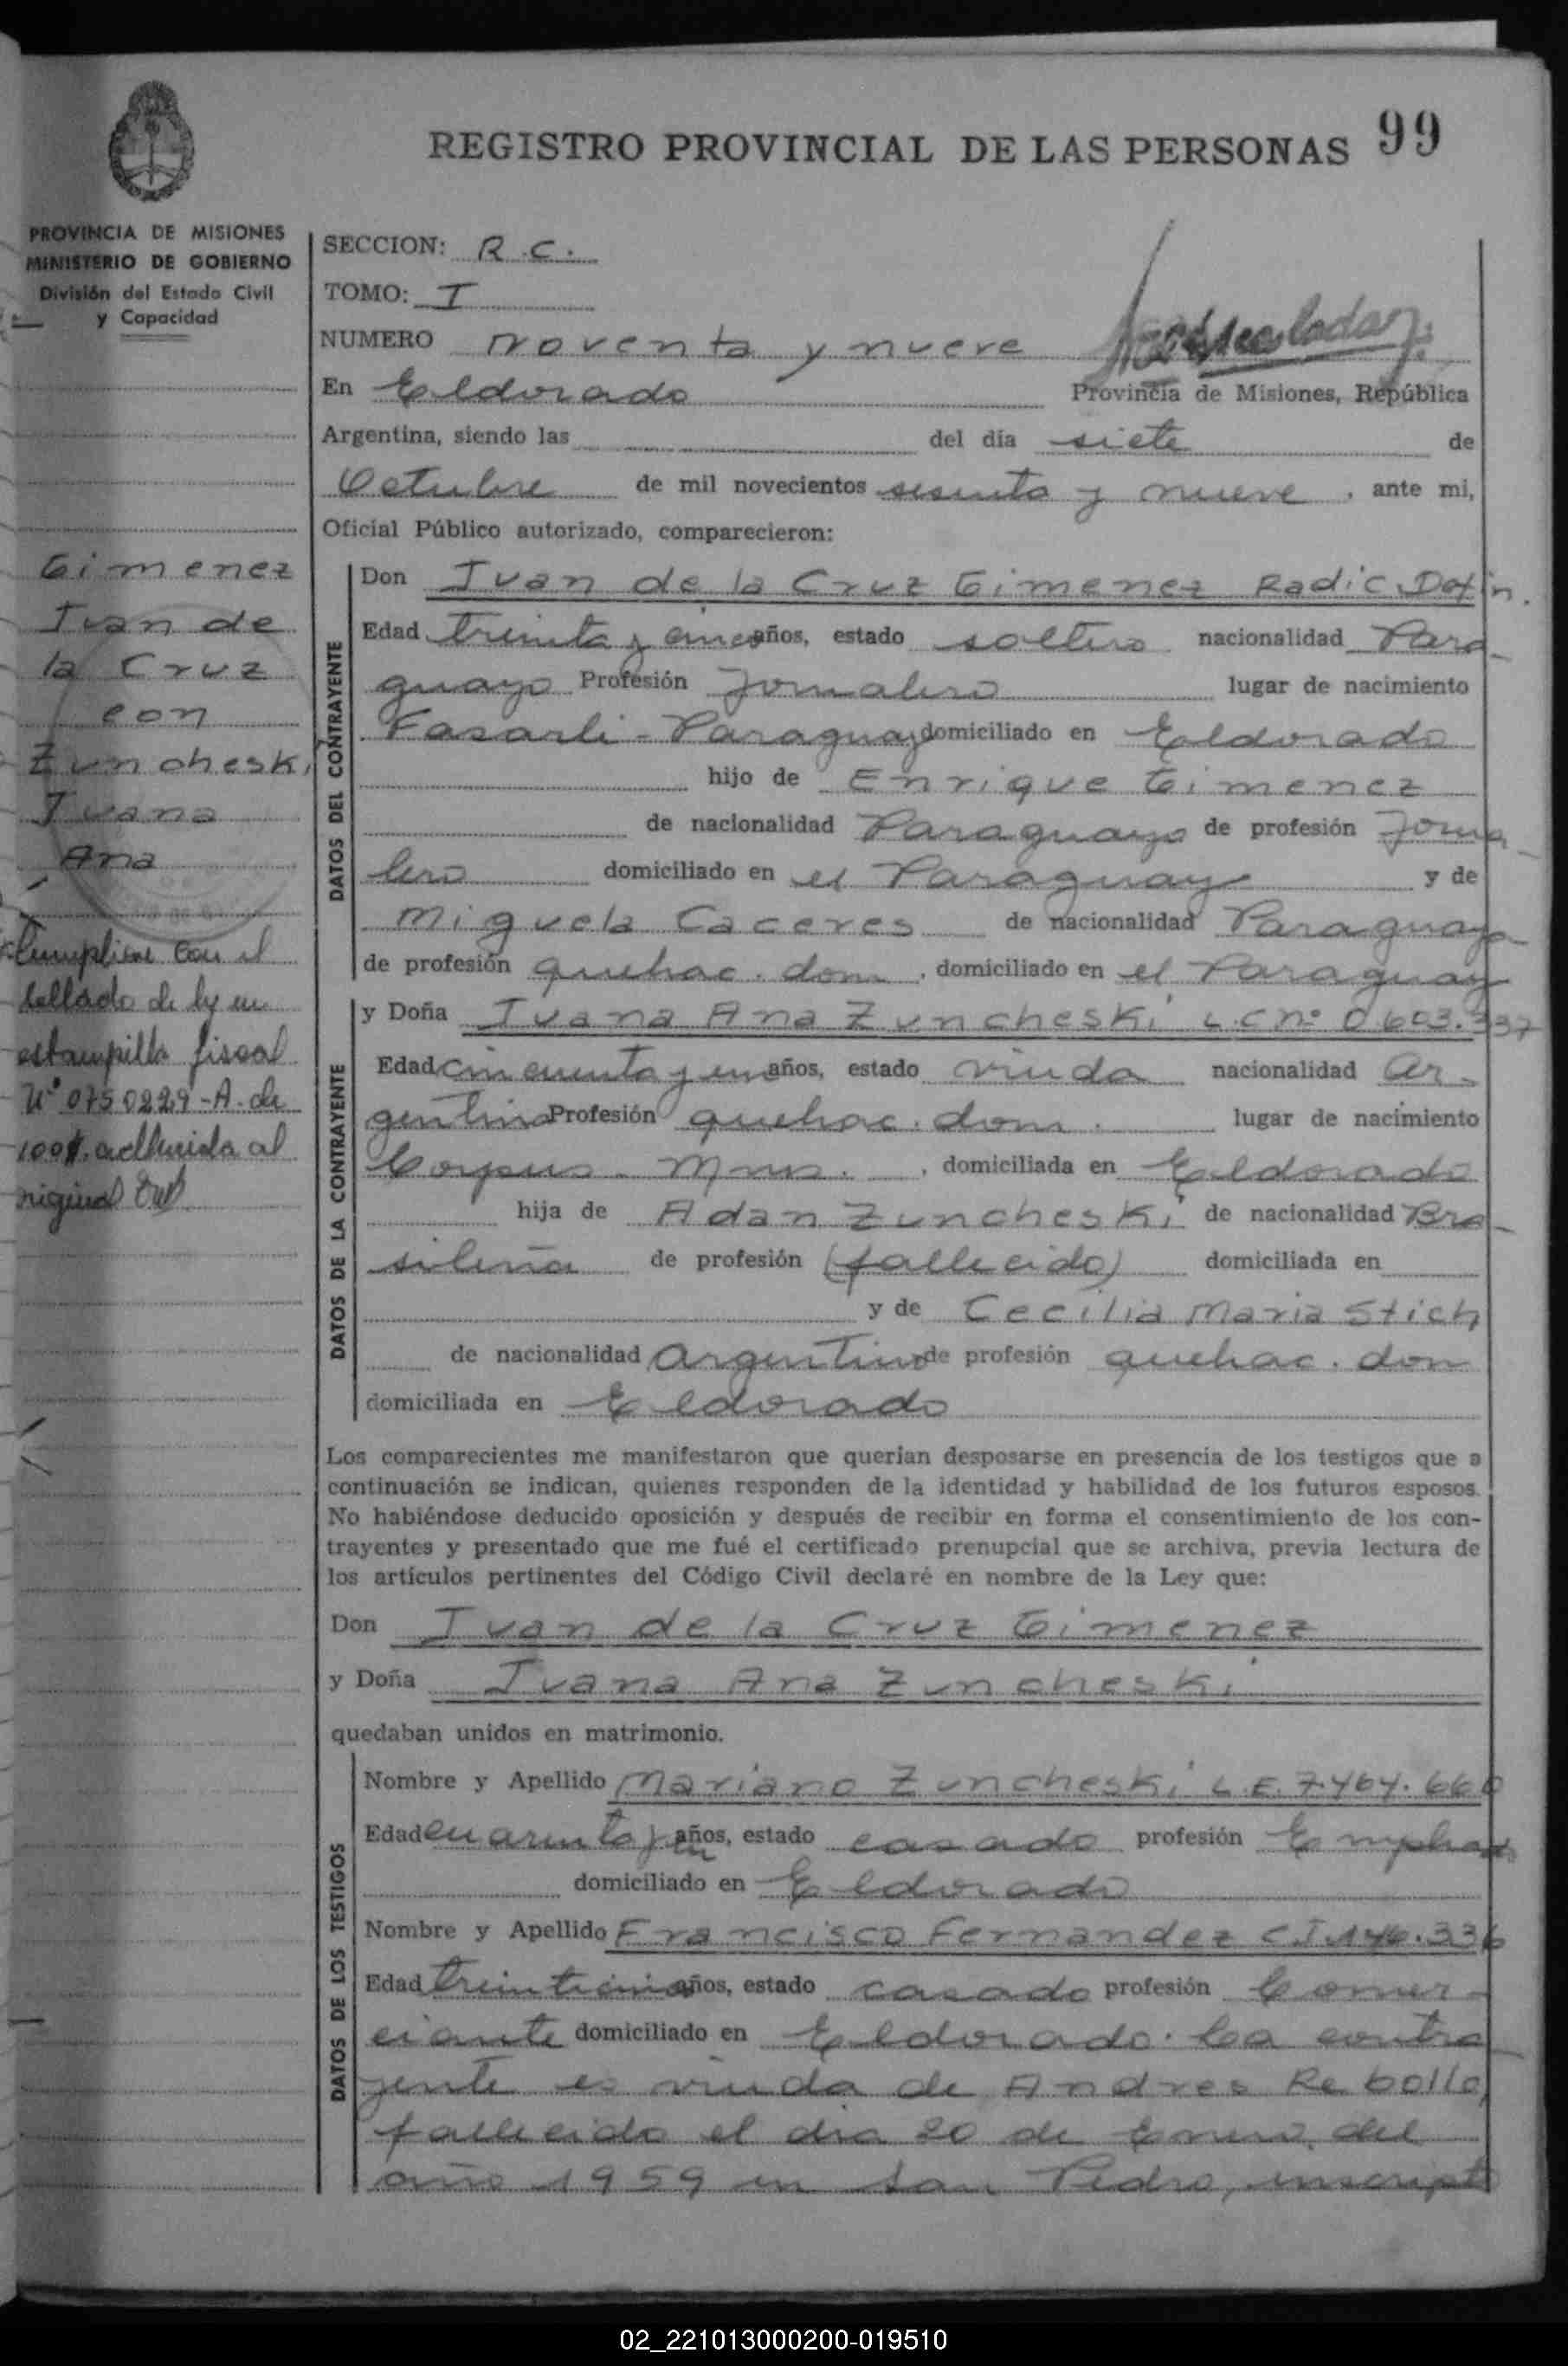 REGISTRO PROVINCIAL DE LAS PERSONAS 99
PROVINCIA DE MISIONES
MINISTERIO DE GOBIERNO
División del Estado Civil
y Capacidad
SECCION: R.C.
TOMO: I
NUMERO noventa y nueve
En Eldorado Provincia de Misiones, República
Argentina, siendo las del día siete de
Octubre de mil novecientos sesenta y nueve, ante mi,
Oficial Público autorizado, comparecieron:
Gimenez
Juan de
la Cruz
con
Zuncheski
Juana
Ana
Cumplióse con el
sellado de ley en
estampilla fiscal
Nº 0750229-A. de
100$. adherida al
original
DATOS DEL CONTRAYENTE
Don Juan de la Cruz Gimenez Radic. Defin.
Edad treinta y cinco años, estado soltero nacionalidad Para-
guayo Profesión Jornalero lugar de nacimiento
Paraguay domiciliado en Eldorado
hijo de Enrique Gimenez
de nacionalidad Paraguayo de profesión Jorna-
lero domiciliado en el Paraguay y de
Miguela Caceres de nacionalidad Paraguaya
de profesión quehac. dom., domiciliado en el Paraguay
DATOS DE LA CONTRAYENTE
y Doña Juana Ana Zuncheski L.C nº 0603.337
Edad cincuenta y un años, estado viuda nacionalidad Ar-
gentina Profesión quehac. dom. lugar de nacimiento
Corpus - Mnes., domiciliada en Eldorado
hija de Adan Zuncheski de nacionalidad Bra-
sileña de profesión (fallecido) domiciliada en
y de Cecilia Maria Stich
de nacionalidad Argentina de profesión quehac. dom
domiciliada en Eldorado
Los comparecientes me manifestaron que querían desposarse en presencia de los testigos que a
continuación se indican, quienes responden de la identidad y habilidad de los futuros esposos.
No habiéndose deducido oposición y después de recibir en forma el consentimiento de los con-
trayentes y presentado que me fué el certificado prenupcial que se archiva, previa lectura de
los artículos pertinentes del Código Civil declaré en nombre de la Ley que:
Don Juan de la Cruz Gimenez
y Doña Juana Ana Zuncheski
quedaban unidos en matrimonio.
DATOS DE LOS TESTIGOS
Nombre y Apellido Mariano Zuncheski L.E. 7.464.660
Edad cuarenta y un años, estado casado profesión Empleado
domiciliado en Eldorado
Nombre y Apellido Francisco Fernandez C.I. 146.336
Edad años, estado casado profesión Comer-
ciante domiciliado en Eldorado. La contra-
yente es viuda de Andres Rebollo,
fallecido el dia 20 de Enero del
año 1959 en San Pedro, inscripto
02_221013000200-019510